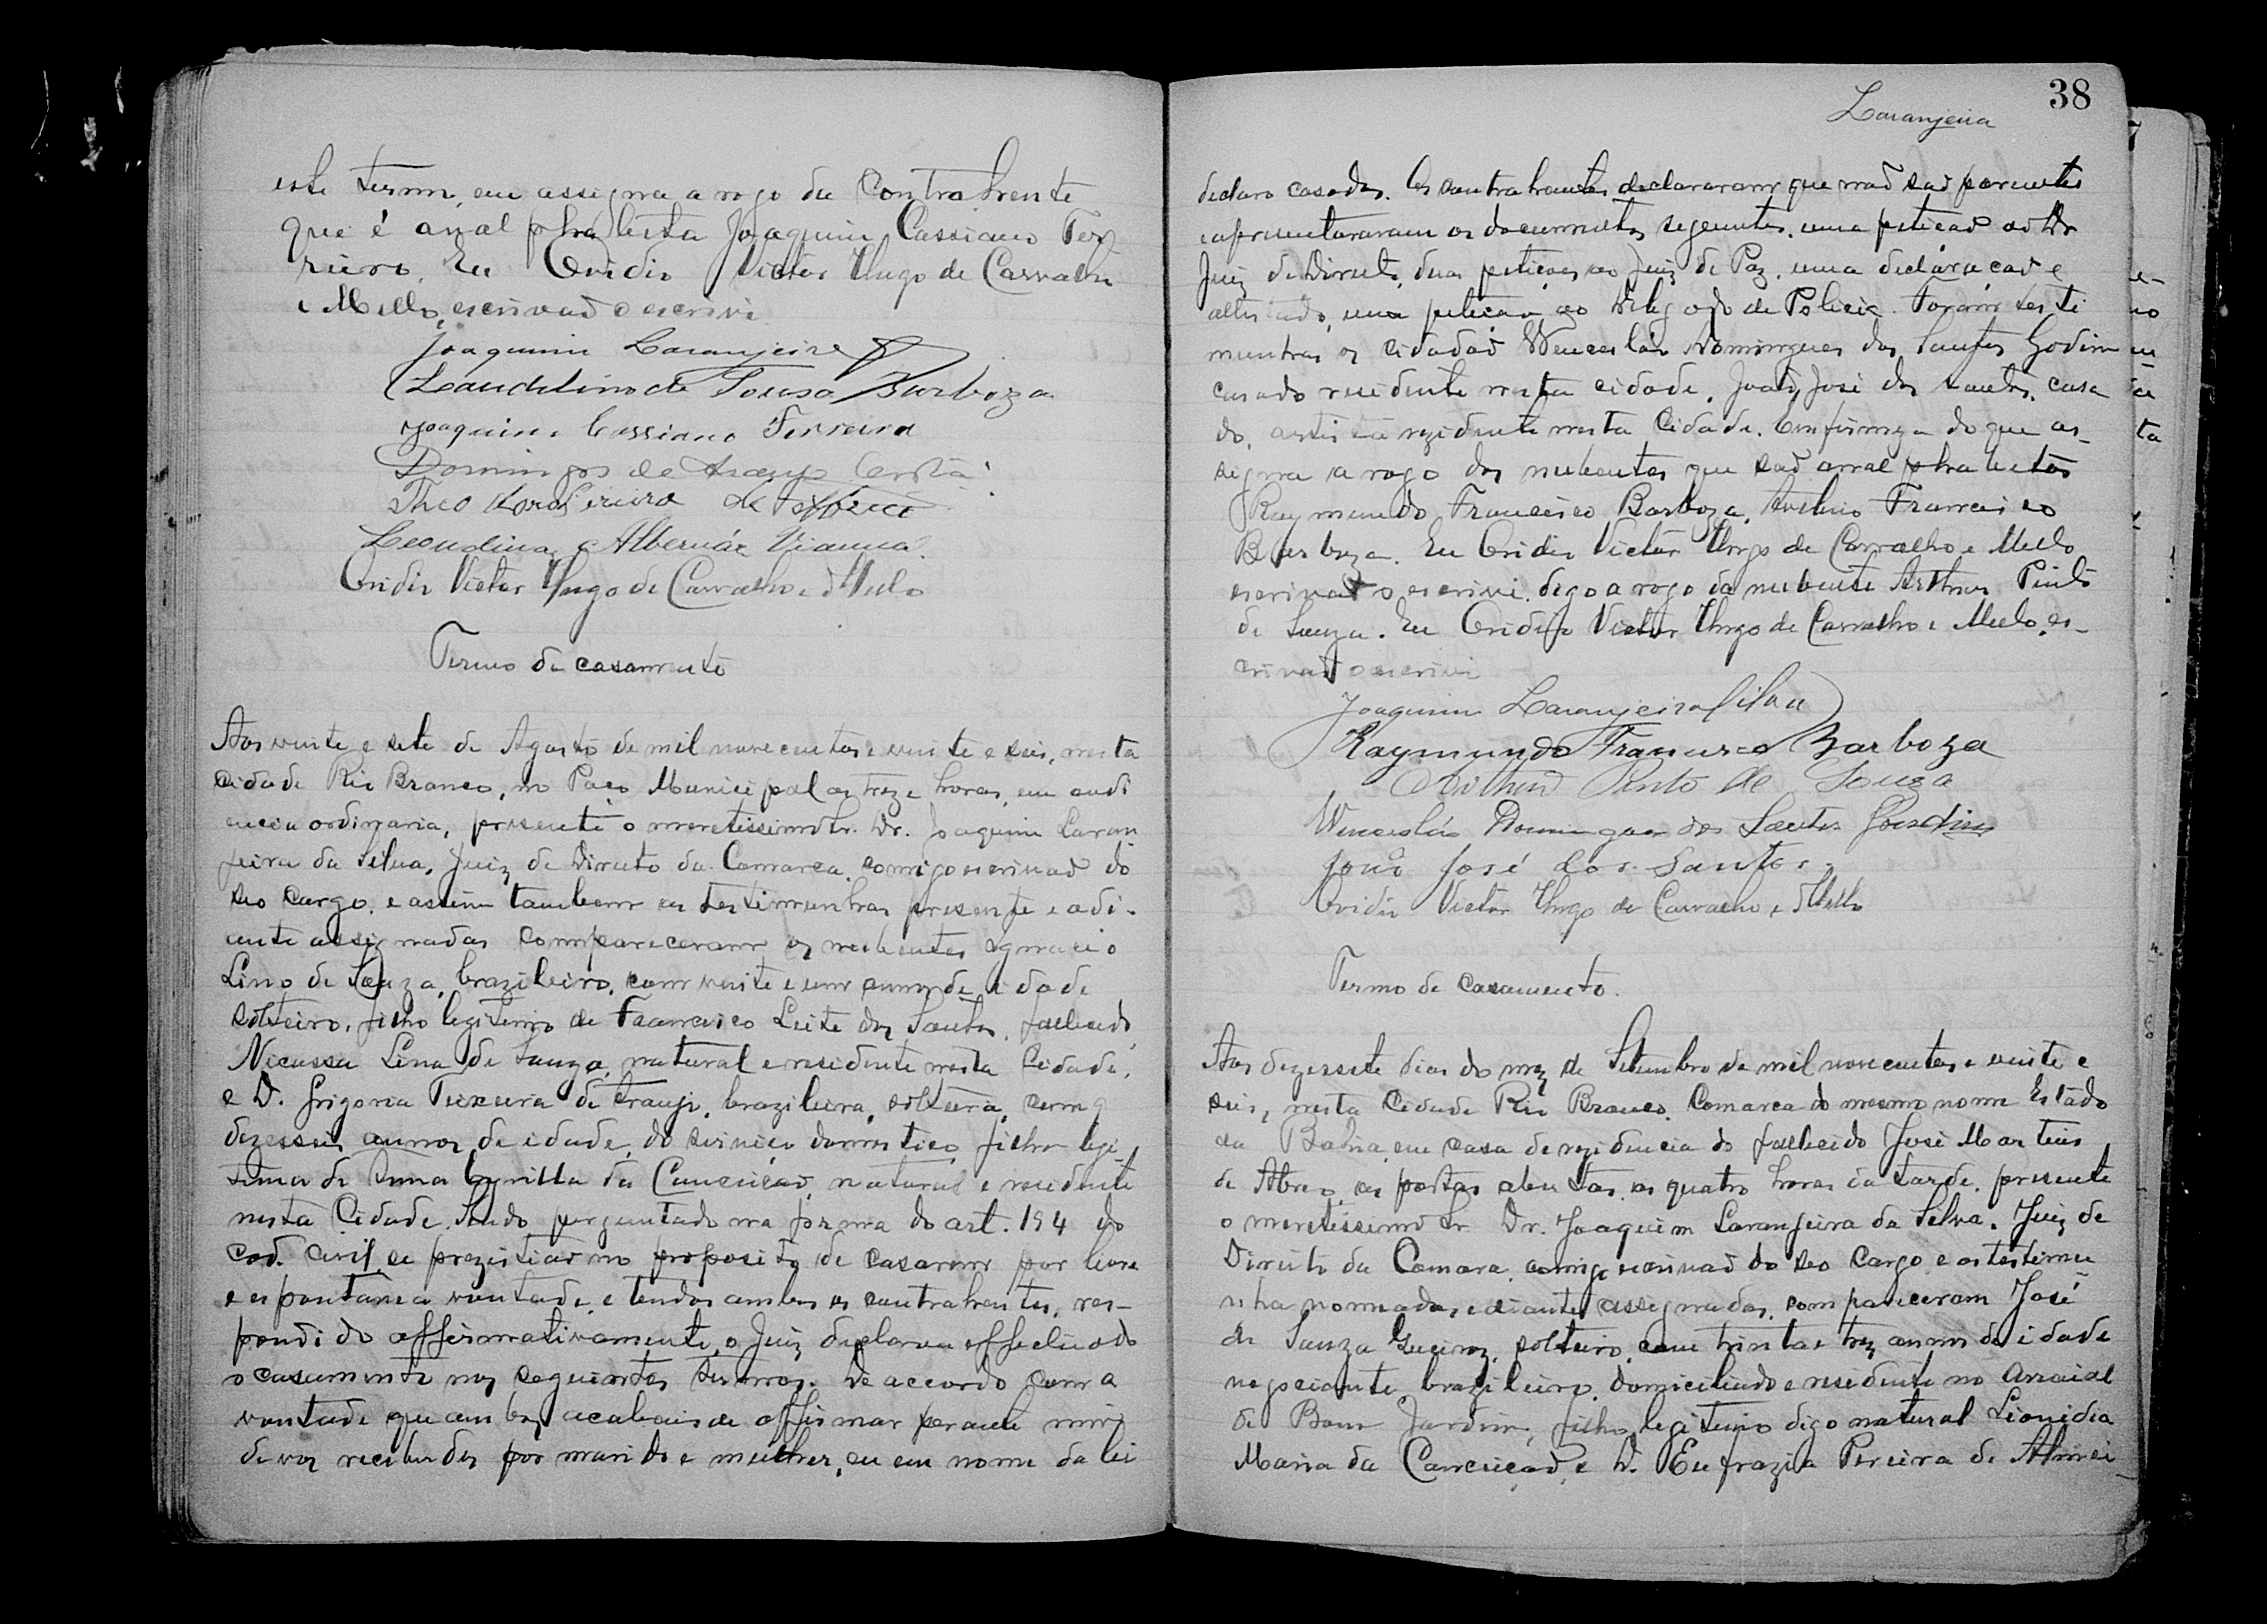 este termo, em assigna a rogo da Contrahente
que é analphabeta Joaquim Cassiano Fer
reira. Eu Ovidio Victor Hugo de Carvalho
e Mello, escrivaõ o escrivi
Joaquim Laranjeira
Laudelino de Sousa Barboza
Joaquim Cassiano Ferreira
Domingos de Araujo Costa
Theodoro Pereira de
Leondina Albernáz Vianna
Ovidio Victor Hugo de Carvalho e Mello
Termo de casamento
Aos vinte e sete de Agosto de mil novecentos e vinte e seis, nesta
cidade Rio Branco, no Paço Municipal as treze horas, em audi
encia ordinaria, presente o meretissimo Sr. Dr. Joaquim Laran
jeira da Silva, Juiz de Direito da Comarca, comigo escrivaõ do
seo cargo, e assim tambem as testimunhas presente e adi-
ante assignadas compareceram os nubentes Ignacio
Lino de Souza, brazileiro, com vinte e um annos de idade
solteiro, filho legitimo de Francisco Leite dos Santos, fallecido,
Nicassa Lina de Souza, natural e residente nesta Cidade,
e D. Grigoria Teixeira de Araujo, brazileira, solteira, com
dezesseis annos de idade, do serviço domestico, filha legi
tima de Anna Cyrilla da Conceiçaõ, natural e residente
nesta Cidade. Sendo perguntado na forma do art. 194 do
Cod. Civil, se prezistiaõ no proposito de casarem por livre
e espontanea vontade, e tendos ambos os contrahentes, res-
pondido affirmativamente, o Juiz declarou effectuado
o casamento nos seguintes termos. De accordo com a
vontade que ambos acabais de affirmar perante mim
de vos receberdes por marido e mulher, eu em nome da lei
38
Laranjeira
declaro casados. Os contrahentes declararam que naõ saõ parentes
e apresentararam os documentos seguintes, uma petiçaõ ao Dr
Juiz de Direito, duas petiçoes ao Juiz de Paz, uma declaraçaõ e
attestado, uma petiçaõ ao Delegado de Policia. Foram testi
munhas os cidadaõ Wenceslau Domingues dos Santos Godim
casado residente nesta cidade, Joaõ José dos Santos, casa
do, artista rezidente nesta Cidade. Em firmeza do que as-
signa a rogo dos nubentes que saõ analphabetos
Raymundo Francisco Barboza, Francisco
Barboza. Eu Ovidio Victor Hugo de Carvalho e Mello
escrivaõ o escrivi, digo a rogo da nubente Arthur Pinto
de Souza. Eu Ovidio Victor Hugo de Carvalho e Mello, es-
crivaõ o escrivi
Joaquim Laranjeira Silva
Raymundo Francisco Barboza
Arthur Pinto de Souza
Wenceslau Domingues dos Santos Gondim
João José dos Santos
Ovidio Victor Hugo de Carvalho e Mello
Termo de casamento.
Aos dezessete dias do mez de Setembro de mil novecentos e vinte e
seis, nesta Cidade Rio Branco, Comarca do mesmo nome Estado
da Bahia, em casa de rezidencia do fallecido José Martins
de Abreo, as portas abertas, as quatro horas da tarde, presente
o meretissimo Sr Dr. Joaquim Laranjeira da Silva, Juiz de
Direito da Comarca, comigo escrivaõ do seo Cargo e as testimu
nha nomeadas e adiante assignadas, compareceram José
de Souza Queiroz, solteiro, com trinta e trez annos de idade
negociante, brazileiro, domiciliado e residente no Arraial
de Bom Jardim, filho legitimo digo natural Lionidia
Maria da Conceiçaõ, e D. Eufrazia Pereira de Almei-